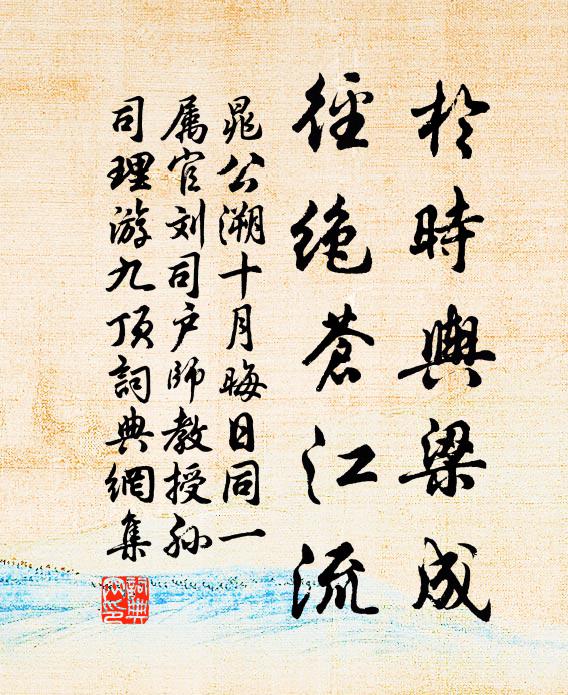 於時輿梁成
徑絶蒼江流
晁公溯十月晦日同一
属官刘司户師教授孙
司理游九顶詞典網集